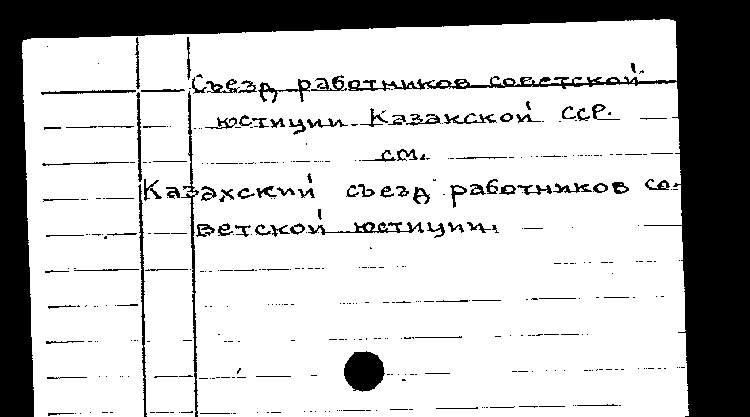 Съезд работников советской
юстиции Казакской ССР.
см.
Казахский съезд работников со-
ветской юстиции.